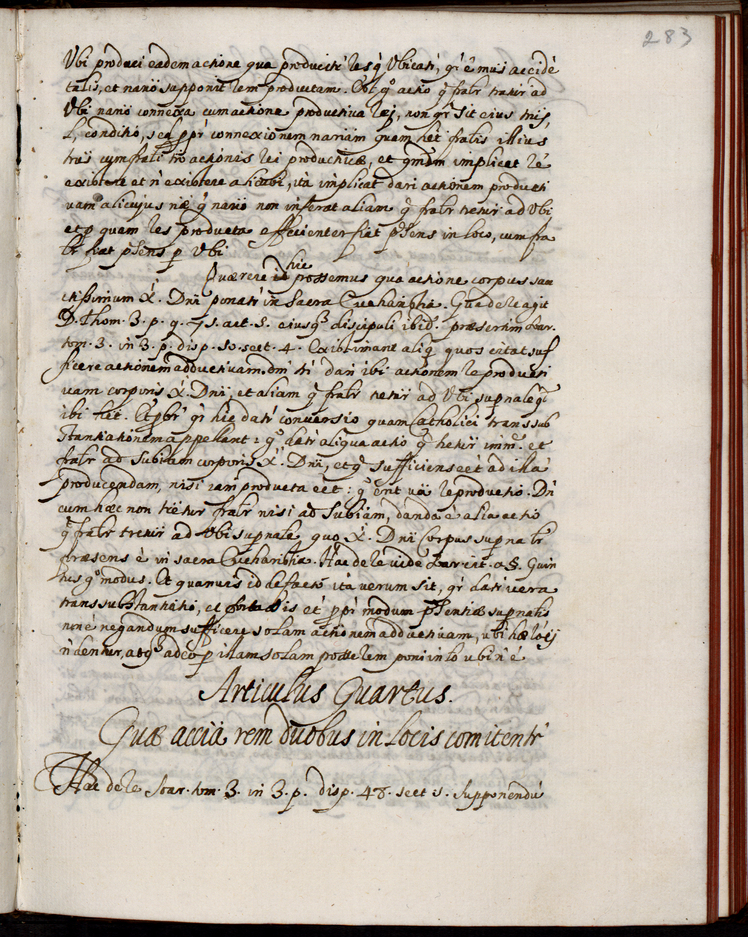 283
Vbi produci eadem actione qua producitr res q Vbicati, qr ē mus accidē
talis, et nariò supponit rem productam. At qº actio q fralr tretir ad
Vbi nariò connexa cum actione productiva rei, non qr sit eius
l, conditio, sed ppr connexionem nariam quam het fralis illius
cum frali actionis rei productivæ, et qmdm implicet rē
existere et n existere alicubi, ita implicat dari actionem producti
vam alicujus q nariò non inferat aliam q fralr tretir ad Vbi
et p quam res producta efficienter fiat pSens in loco, cum fra
lr fiat pSens p Vbi
Quærere hic possemus qua actione corpus sacra
tissimum X. Dnï ponatr in Sacra Eucharistia. Qua de re agit
D. Thom. 3. p. q. 75. art. eiusq discipuli ibid. præsertim Soar.
tom. 3. in 3. p. disp. 50. sect. 4. Existimant aliq quos citat suf
ficere actionem adductivam. dari ibi actionem re producti
vam corporis X. Dnï, et aliam q fralr tretir ad Vbi supnale q
ibi het. qr hic datr conversio quam Catholici transsub
stantiationem appellant: qª datr aliqua actio q tretir immˢ et
fralr ad Subiam corporis X. Dnï, et q sufficiens eet ad illā
producendam, nisi iam producta eet: qª erit reproductio. Dⁱ
cum hæc non tretur fralr nisi ad Subiam, danda ē alia actio
q fralr tretir ad Vbi supnale quo X. Dnï Corpus supnalr
præsens ē in sacra Eucharistia. Hac de re vide Soar. cit. a §. Quin
tus qº modus. Et quamvis id de facto ita verum sit, qr datr vera
transsubstantiatio, et fortassis et ppr modum pSentiæ supnalis
non ē negandum sufficere solam actionem adductivam, ubi hæ
n dentur, atq adeo p illam solam posse rem poni in lo ubi n ē
Articulus Quartus.
Quæ acciā rem duobus in Locis comitentr
Hac de re Soar. tom. 3. in 3. p. disp. 48. sect 1. Supponendū